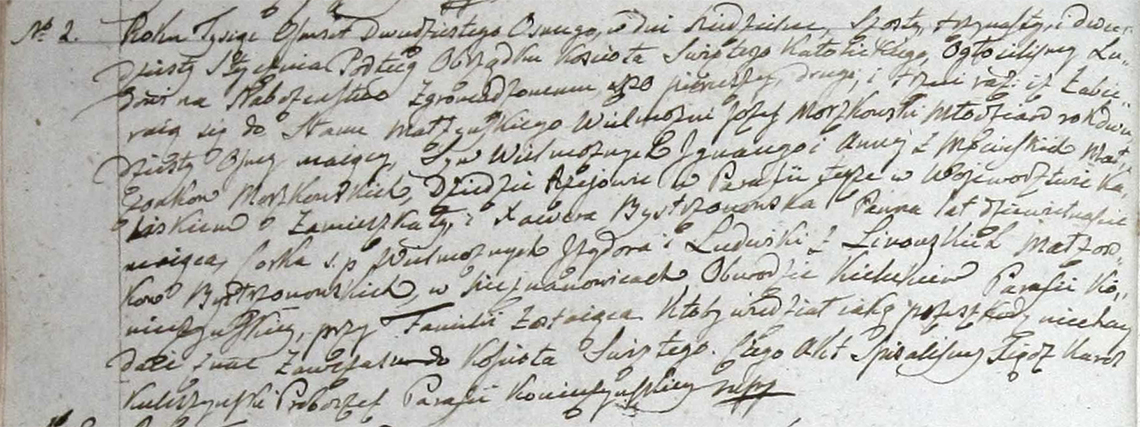 N° 2. Roku Tysiąc Osmset Dwudziestego Osmego, w dni Niedzielne, Szosty, trzynasty, i dwu-
dziesty Stycznia Podług Obrządku Kościoła Swiętego Katolickiego, Ogłosilismy Lu-
dowi na Nabozenstwo Zgromadzonemu po pierwszy, drugi, i trzeci raz: iż Zabie-
raią się do Stanu Małzenskiego Wielmożni Jozef Morzkowski Młodzian rok dwu
dziesty Osmy maiący, Syn Wielmożnych Ignacego i Anny z Małz-
zonkow Morzkowskich, Dziedzic Rzejowic w Parafii tejze w Wojewodztwie Ka-
liskiem Zamieszkały, i Xawera Bystrzonowska Panna lat dziewietnascie
maiąca, Corka s.p. Wielmożnych Izydora i Ludwiki z Linowskich Małzon-
kow Bystrzonowskich, w Obwodzie Kieleckiem Parafii Ko-
nieczynskiey, przy Familii Zostaiąca. Ktoby wiedział iaką przeszkodę niechay
da znac Zawczasu do Kościoła Swiętego. Czego Akt Spisalismy Tigoz Karol
Proboszcz Parafii Konieczynskiey mpp